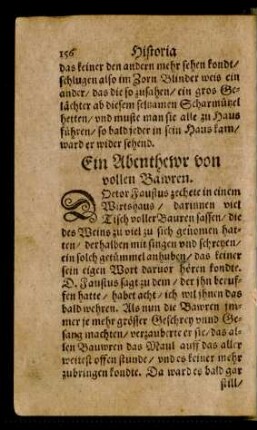 156 Historia
das keiner den andern mehr sehen kondt/
schlugen also im Zorn Blinder weis ein
ander/ das die so zusahen/ ein gros Ge-
lächter ab diesem selnamen Scharmützel
hetten/ vnd muste man sie alle zu Haus
führen/ so bald jeder in sein Haus kam/
ward er wider sehend.
Ein Abenthewr von
vollen Bawren.
DOctor Faustus zechete in einem
Wirtshaus/ darinnen viel
Tisch voller Bauren sassen/ die
des Weins zu viel zu sich genomen hat-
ten/ derhalben mit singen vnd schreyen/
ein solch getümmel anhuben/ das keiner
sein eigen Wort daruor hören kondte.
D. Faustus sagt zu dem/ der jhn beruf-
fen hatte/ habet acht/ ich wil jhnen das
bald wehren. Als nun die Bawren jm-
mer je mehr grösser Geschrey vnnd Ge-
sang machten/ verzauberte er sie/ das al-
len Bauwren das Maul auff das aller
weitest offen stunde/ vnd es keiner mehr
zubringen kondte. Da ward es bald gar
still/